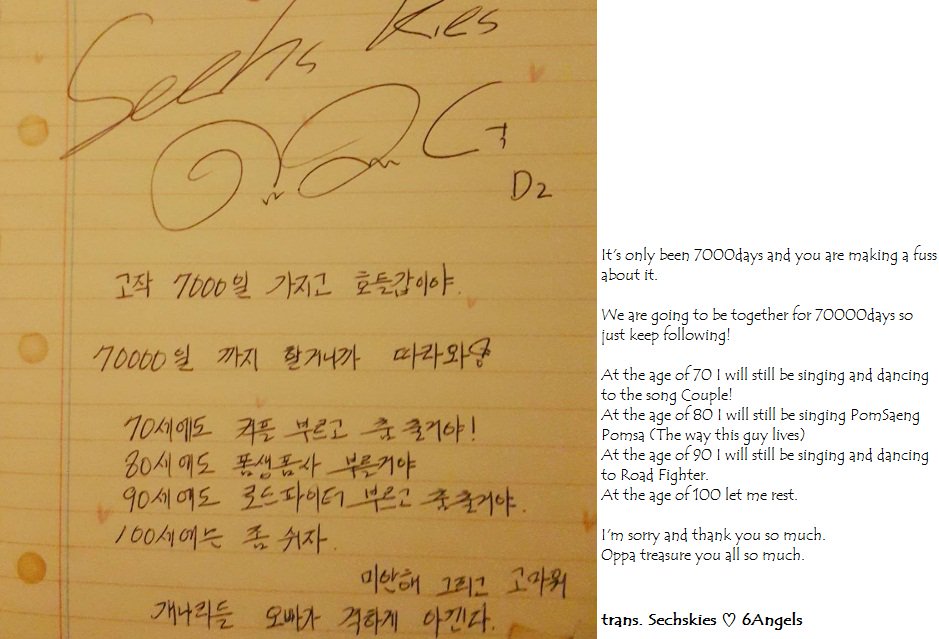 Sechs Kies
D2
고작 7000일 가지고 호들갑이야.
70000일 까지 할거니까 따라와
70세에도 커플 부르고 춤 출거야!
80세에도 폼생폼사 부를거야
90세에도 로드파이터 부르고 춤출거야.
100세에는 좀 쉬자
미안해 그리고 고마워
개나리들 오빠가 격하게 아낀다.
It's only been 7000days and you are making a fuss
about it.
We are going to be together for 70000days so
just keep following!
At the age of 70 I will still be singing and dancing
to the song Couple!
At the age of 80 I will still be singing PomSaeng
Pomsa (The way this guy lives)
At the age of 90 I will still be singing and dancing
to Road Fighter.
At the age of 100 let me rest.
I'm sorry and thank you so much.
Oppa treasure you all so much.
trans. Sechskies ♡ 6Angels